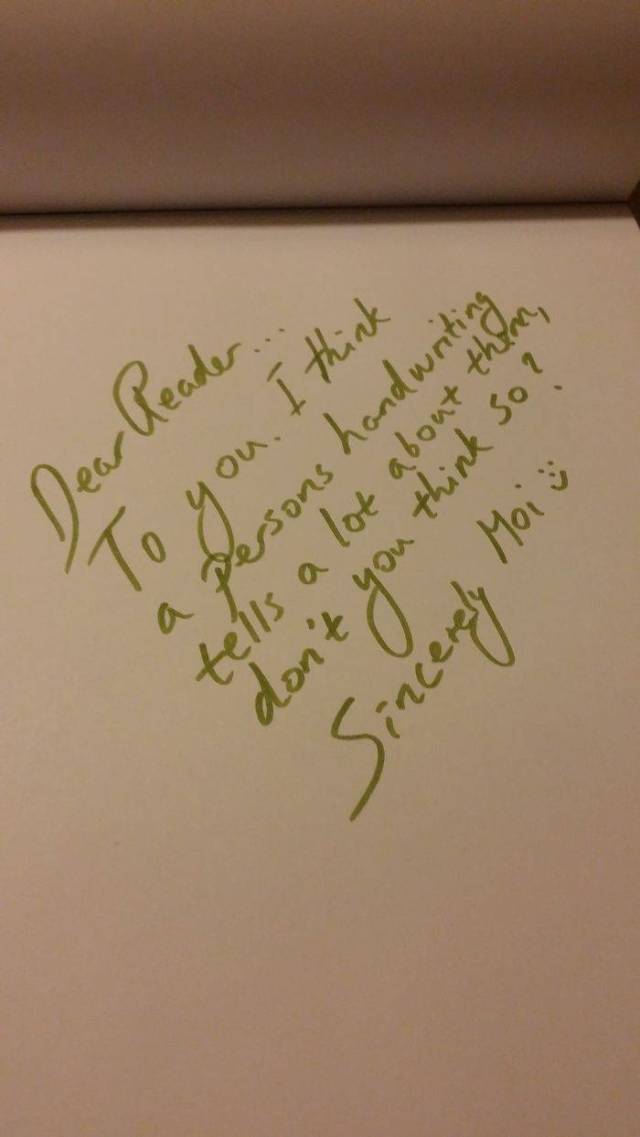 Dear Reader...
To you. I think
a persons handwriting
tells a lot about them,
don't you think so?
Sincerely Moi